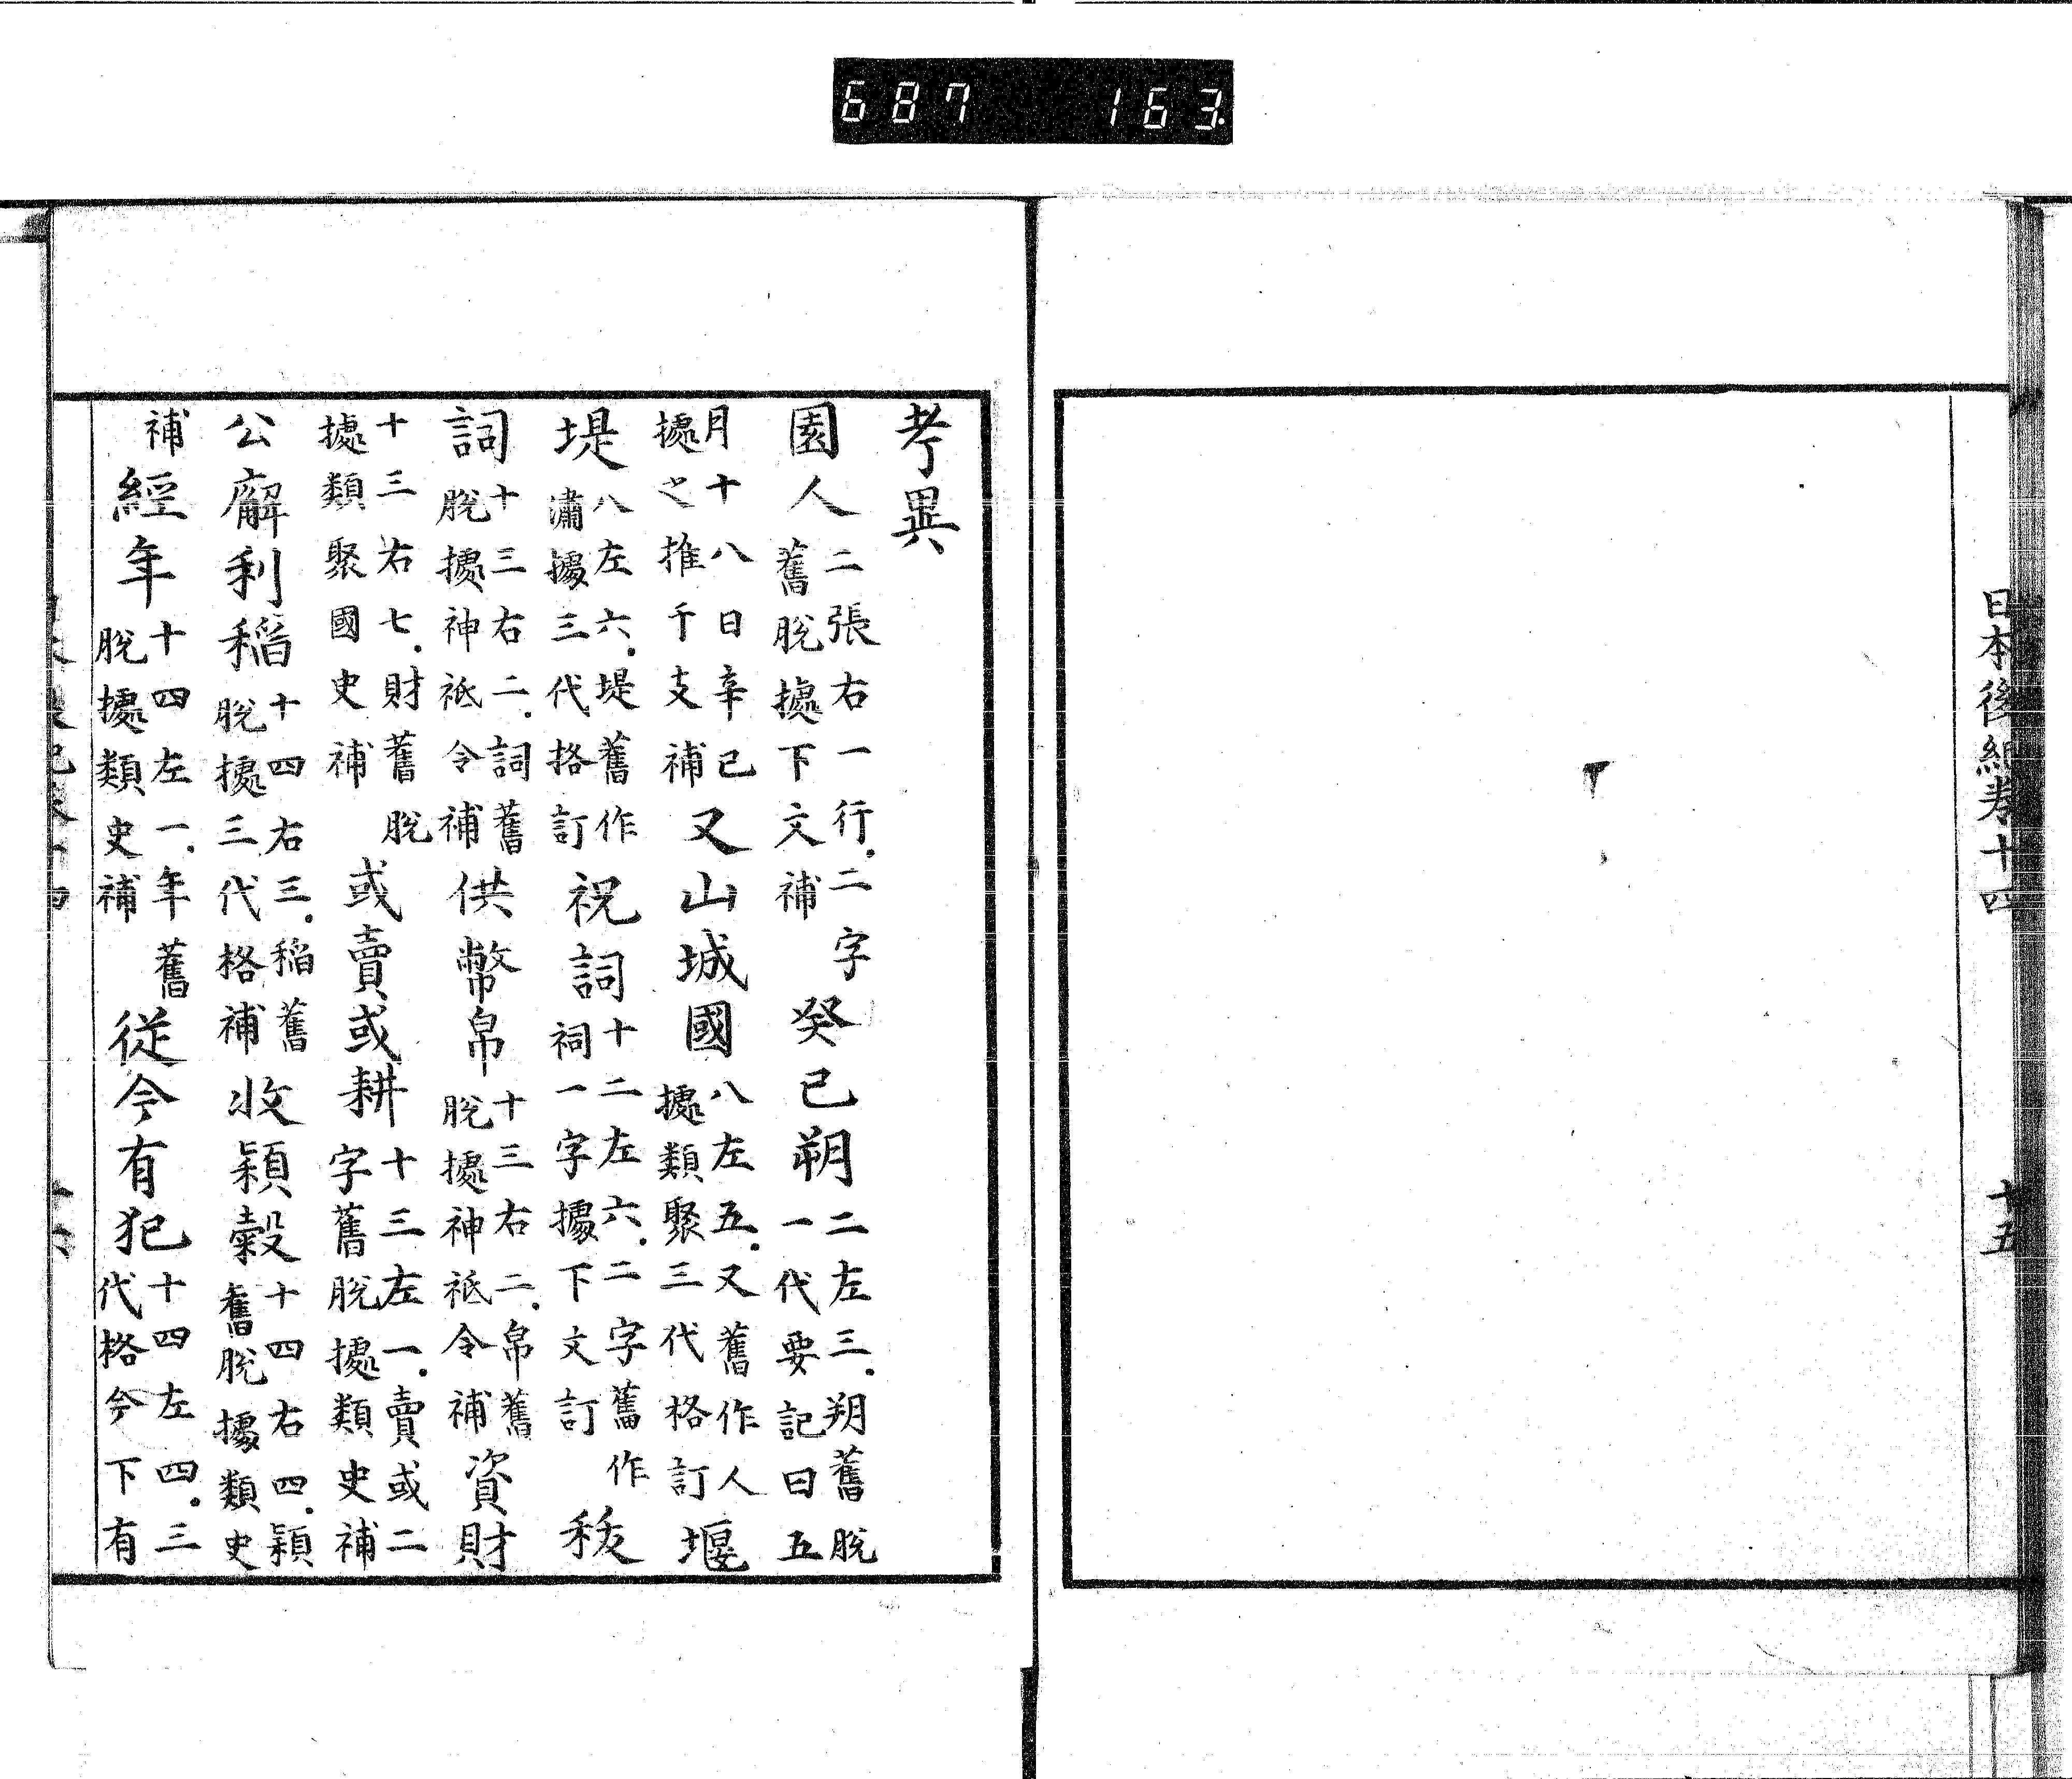 687 163
日本後紀卷十四 十五
考異
園人 二張右一行.二字舊脱據下文補 癸巳朔 二左三.朔舊脱一代要記曰五
月十八日辛巳據之推千支補 又山城國 八左五.又舊作人據類聚三代格訂 堰
堤 八左六.堤舊作潚據三代格訂 祝詞 十二左六.二字舊作祠一字據下文訂 祓
詞 十三右二.詞舊脱據神祇令補 供幣帛 十三右二.帛舊脱據神祇令補 資財
十三右七.財舊脱據類聚國史補 或賣或耕 十三左一.賣或二字舊脱據類史補
公廨利稲 十四右三.稲舊脱據三代格補 收穎穀 十四右四.穎舊脱據類史
補 經年 十四左一.年舊脱據類史補 從今有犯 十四左四.三代格今下有